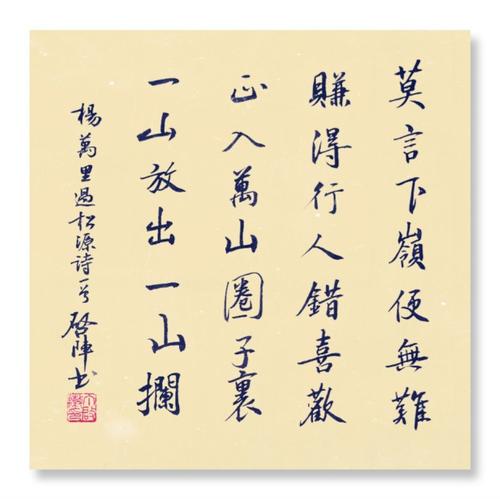 莫言下嶺便無難
賺得行人錯喜歡
正入萬山圈子裏
一山放出一山攔
楊萬里過松源詩一首 啓陣書